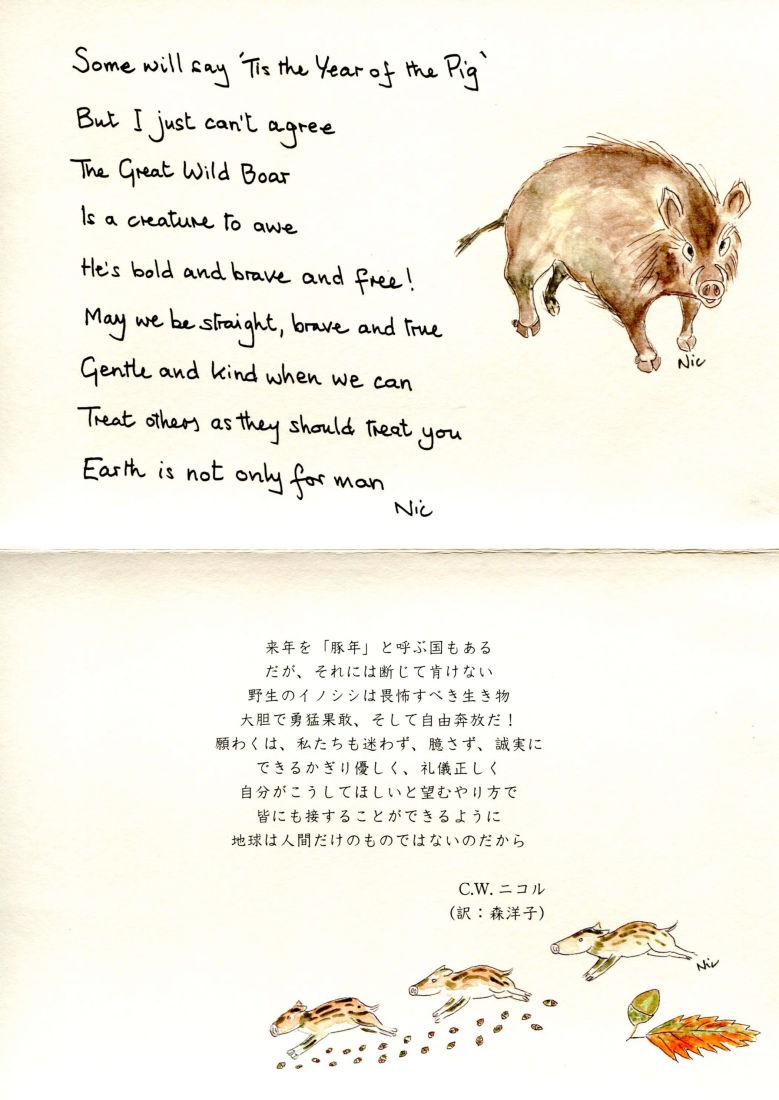 Some will say 'Tis the Year of the Pig'
But I just can't agree
The Great Wild Boar
Is a creature to awe
He's bold and brave and free!
May we be straight, brave and true
Gentle and kind when we can
Treat others as they should treat you
Earth is not only for man
Nic
Nic
来年を「豚年」と呼ぶ国もある
だが、それには断じて肯けない
野生のイノシシは畏怖すべき生き物
大胆で勇猛果敢、そして自由奔放だ！
願わくは、私たちも迷わず、臆さず、誠実に
できるかぎり優しく、礼儀正しく
自分がこうしてほしいと望むやり方で
皆にも接することができるように
地球は人間だけのものではないのだから
C.W.ニコル
(訳：森洋子)
Nic